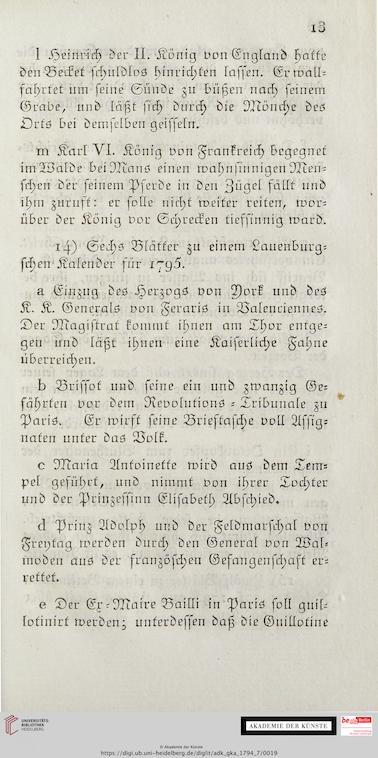 13
l Heinrich der II. König von England hatte
den Becket schuldlos hinrichten lassen. Er wall-
fahrtet um seine Sünde zu büßen nach seinem
Grabe, und läßt sich durch die Mönche des
Orts bei demselben geisseln.
m Karl VI. König von Frankreich begegnet
im Walde bei Mans einen wahnsinnigen Men-
schen der seinem Pferde in den Zügel fällt und
ihm zuruft: er solle nicht weiter reiten, wor-
über der König vor Schrecken tiefsinnig ward.
14) Sechs Blätter zu einem Lauenburg-
schen Kalender für 1795.
a Einzug des Herzogs von York und des
K. K. Generals von Feraris in Valenciennes.
Der Magistrat kommt ihnen am Thor entge-
gen und läßt ihnen eine Kaiserliche Fahne
überreichen.
b Brissot und seine ein und zwanzig Ge-
fährten vor dem Revolutions-Tribunale zu
Paris. Er wirft seine Brieftasche voll Assig-
naten unter das Volk.
c Maria Antoinette wird aus dem Tem-
pel geführt, und nimmt von ihrer Tochter
und der Prinzessinn Elisabeth Abschied.
d Prinz Adolph und der Feldmarschal von
Freytag werden durch den General von Wal-
moden aus der französchen Gefangenschaft er-
rettet.
e Der Ex-Maire Bailli in Paris soll guil-
lotinirt werden; unterdessen daß die Guillotine
UNIVERSITÄTS-
BIBLIOTHEK
HEIDELBERG
AKADEMIE DER KÜNSTE
be Berlin
© Akademie der Künste
https://digi.ub.uni-heidelberg.de/diglit/adk_gka_1794_7/0019